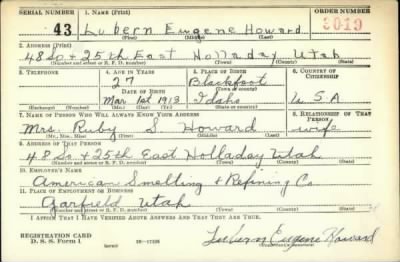 SERIAL NUMBER 1. NAME (Print) ORDER NUMBER
43 Lubern Eugene Howard 2019
(First) (Middle) (Last)
2. ADDRESS (Print)
48 So + 25th East Holladay Utah
(Number and street or R. F. D. number) (Town) (County) (State)
3. TELEPHONE 4. AGE IN YEARS 5. PLACE OF BIRTH 6. COUNTRY OF CITIZENSHIP
27 Blackfoot
DATE OF BIRTH (Town or county)
Mar 1st 1913 Idaho U S A
(Exchange) (Number) (Mo.) (Day) (Yr.) (State or country)
7. NAME OF PERSON WHO WILL ALWAYS KNOW YOUR ADDRESS 8. RELATIONSHIP OF THAT PERSON
Mrs. Ruby S Howard wife
(Mr., Mrs., Miss) (First) (Middle) (Last)
9. ADDRESS OF THAT PERSON
48 So + 25th East Holladay Utah
(Number and street or R. F. D. number) (Town) (County) (State)
10. EMPLOYER'S NAME
American Smelting & Refining Co
11. PLACE OF EMPLOYMENT OR BUSINESS
Garfield Utah
(Number and street or R. F. D. number) (Town) (County) (State)
I AFFIRM THAT I HAVE VERIFIED ABOVE ANSWERS AND THAT THEY ARE TRUE.
REGISTRATION CARD
D. S. S. Form 1
Lubern Eugene Howard